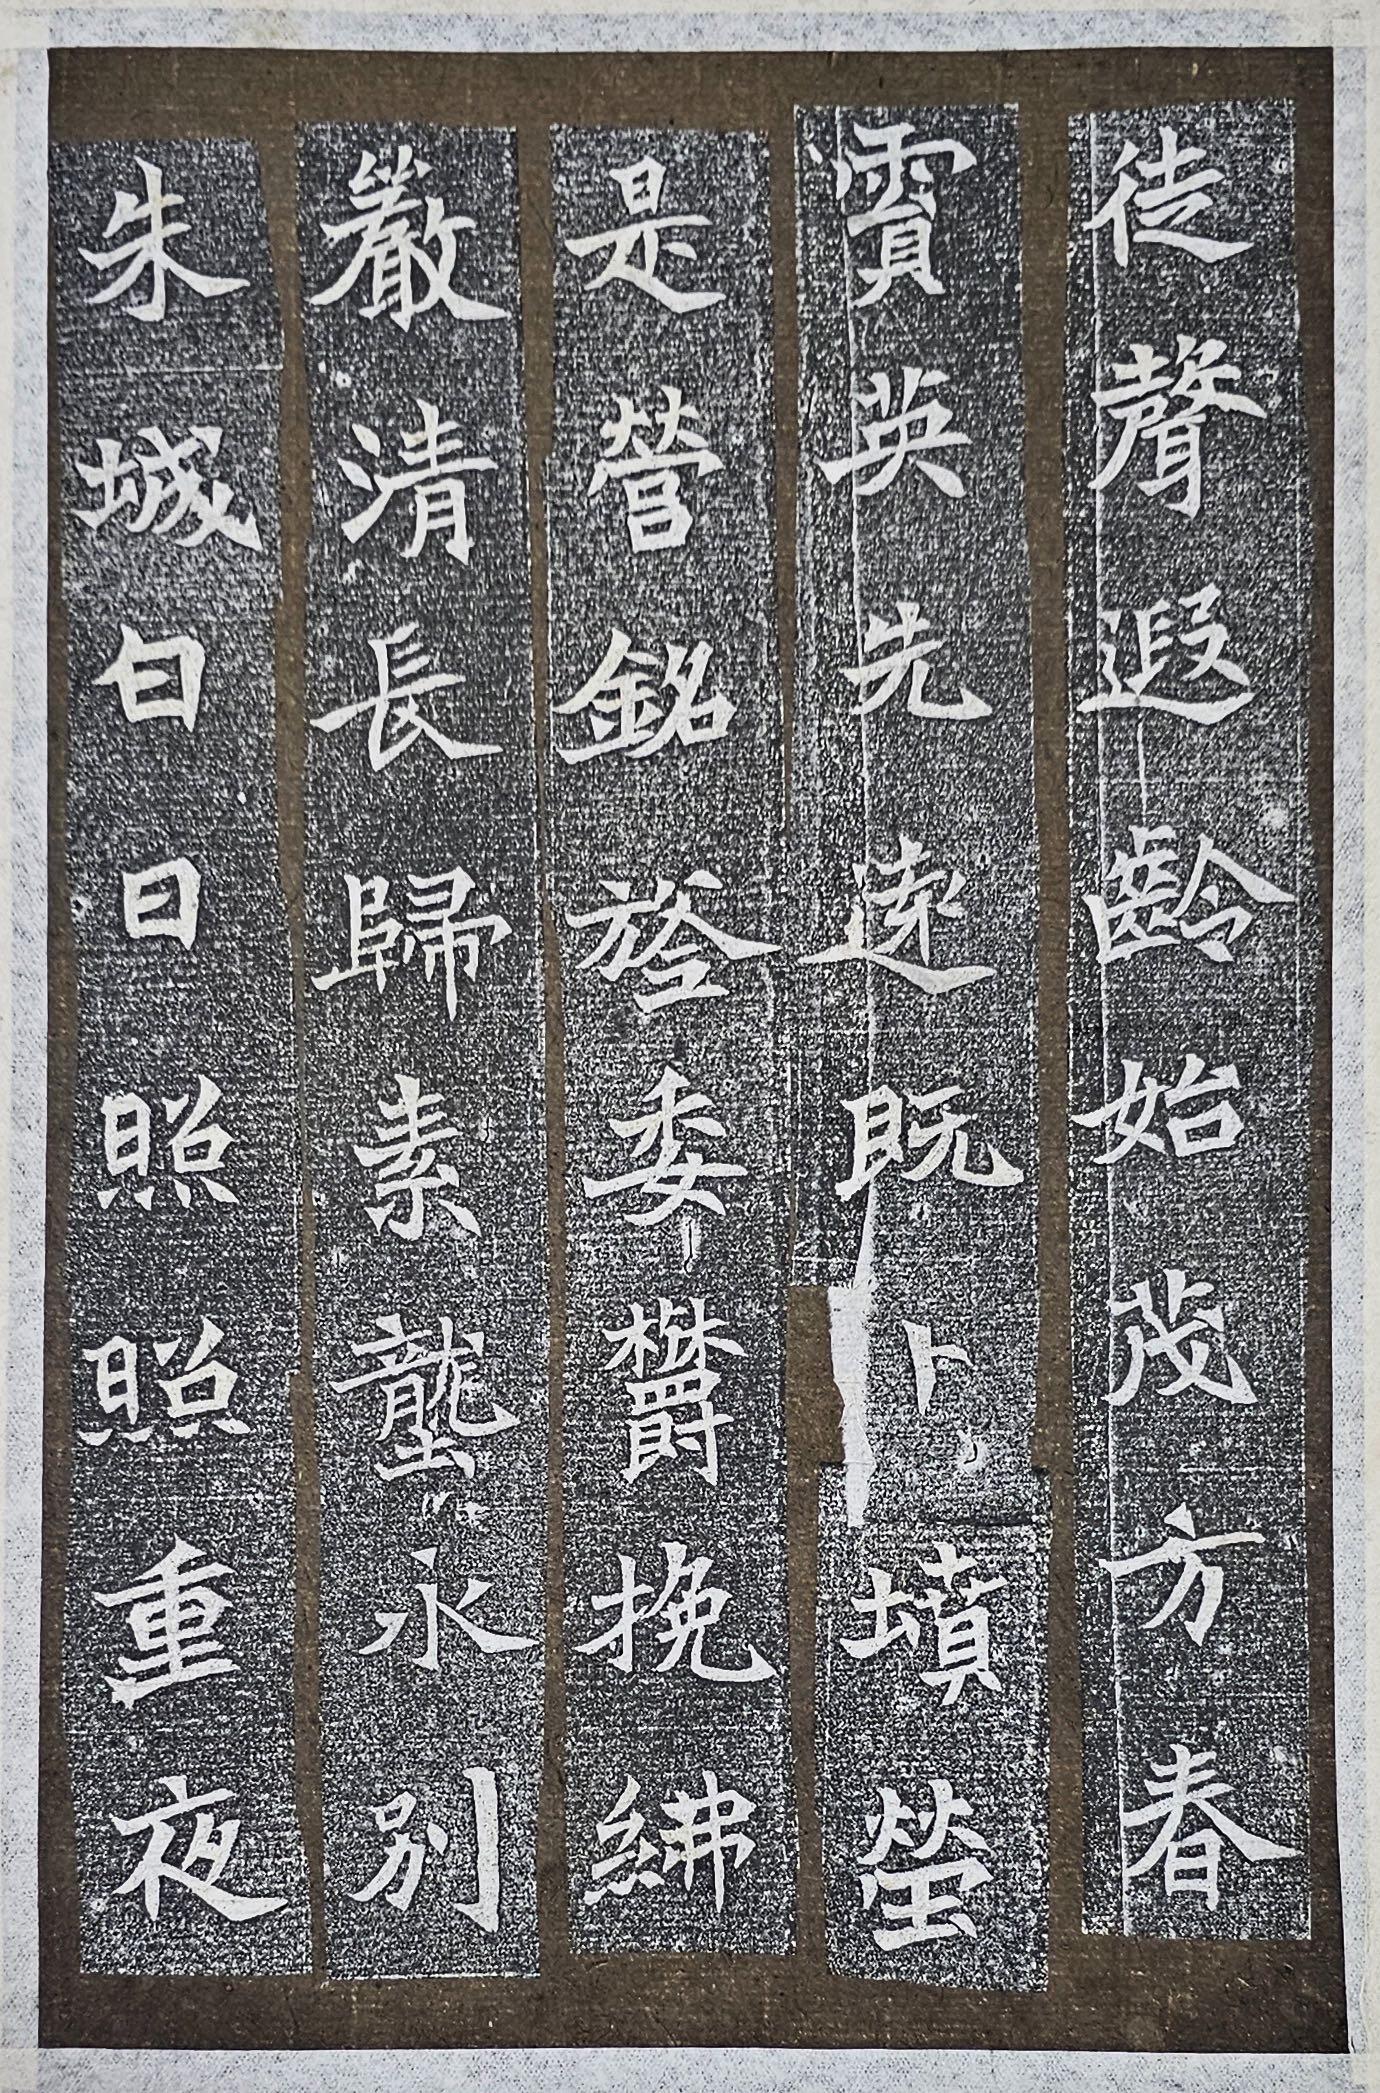 徒聲遐齡始茂方春
霣英先遠既卜墳塋
是營銘旌委欝挽紼
嚴清長歸素壟永別
朱城白日照照重夜